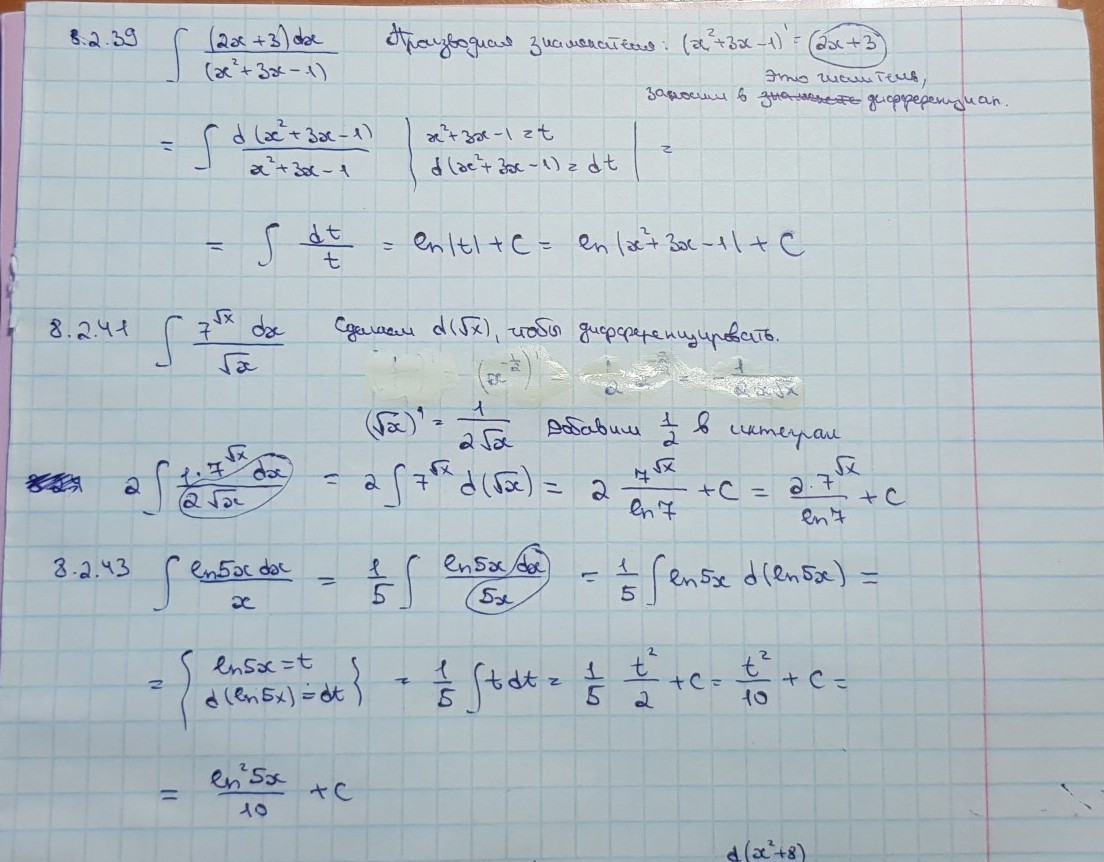 8.2.39 ∫ (2x+3)dx / (x²+3x-1) Производная знаменателя: (x²+3x-1)' = (2x+3)
это числитель,
заносим в дифференциал.
= ∫ d(x²+3x-1) / x²+3x-1 | x²+3x-1=t d(x²+3x-1)=dt | =
= ∫ dt/t = ln|t|+C = ln|x²+3x-1|+C
8.2.41 ∫ 7^√x dx / √x Сделаем d(√x), чтобы дифференцировать.
(√x)' = 1/2√x Добавим 1/2 в интеграл
2∫ 1·7^√x dx / 2√x = 2∫7^√x d(√x) = 2 7^√x/ln7 +C = 2·7^√x/ln7 +C
8.2.43 ∫ ln5x dx / x = 1/5 ∫ ln5x dx / 5x = 1/5 ∫ln5x d(ln5x) =
= { ln5x=t d(ln5x)=dt } = 1/5 ∫tdt = 1/5 t²/2 +C = t²/10 +C =
= ln²5x/10 +C
d(x²+8)